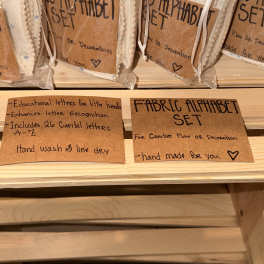 ALPHABET
SET
For Creative Play or Decoration
ALPHABET
SET
- Educational letters for little hands
- Enhances letter recognition
- Includes 26 Capital letters
A-Z
Hand wash & line dry
FABRIC ALPHABET
SET
For Creative Play or Decoration
- hand made for you ♡